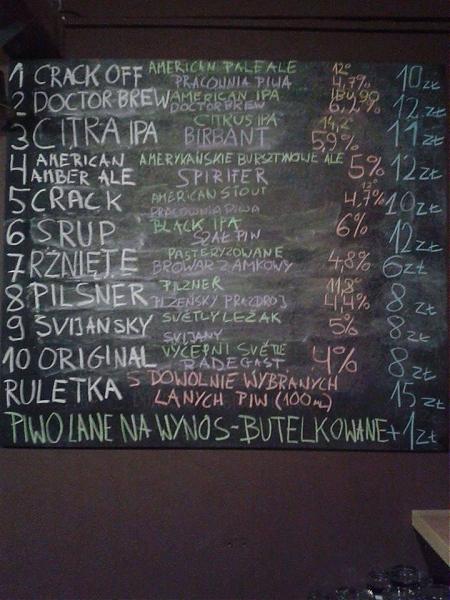 1 CRACK OFF AMERICAN PALE ALE 12° 10 zł
PRACOWNIA PIWA 4,7%
2 DOCTOR BREW AMERICAN IPA 12 zł
DOCTOR BREW
3 CITRA IPA CITRUS IPA 14,2° 11 zł
BIRBANT 5,9%
4 AMERICAN AMERYKAŃSKIE BURSZTYNOWE ALE 5% 12 zł
AMBER ALE SPIRIFER
5 CRACK AMERICAN STOUT 12° 10 zł
PRACOWNIA PIWA 4,7%
6 SRUP BLACK IPA 6% 12 zł
SZAŁPIW
7 RŻNIĘTE PASTERYZOWANE 4,8% 6 zł
BROWAR ZAMKOWY
8 PILSNER PILZNER 11,8° 8 zł
PLZEŇSKÝ PRAZDROJ 4,4%
9 SVIJANSKY SVĚTLÝ LEŽÁK 5% 8 zł
SVIJANY
10 ORIGINAL VÝČEPNI SVĚTLÉ 4% 8 zł
RADEGAST
RULETKA 5 DOWOLNIE WYBRANYCH 15 zł
LANYCH PIW (100 ml)
PIWO LANE NA WYNOS-BUTELKOWANE +1 zł